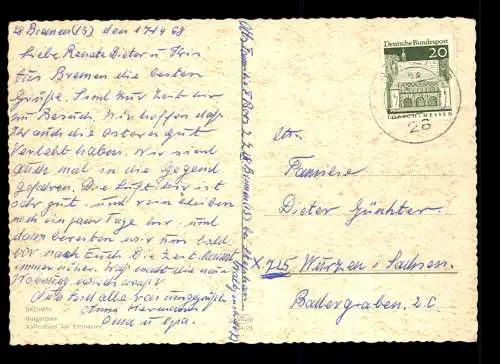 28 Bremen (15) den 17/4 68
Liebe Renate Dieter u. Kris
Aus Bremen die besten
Grüße. Sind zur Zeit hir
zu Besuch. Wir hoffen daß
Ihr auch die Ostern gut
Verlebt haben. Wir sind
auch mal in die Gegend
gefaren. Die Luft hir ist
sehr gut und wir bleiben
noch ein paar Tage hir und
dann bereiten wir uns bald
vor nach Euch. Die Zeit
immer näher. Was macht die neue
Wohnung
Seid alle
Anna Hermann
Oma u Opa.
BREMEN
Bürgerpark
Kaffeehaus am Emmasee
Abs Familie
28 Bremen (15)
Deutsche Bundespost
20
LORSCH/HESSEN
28
An
Familiese
Dieter Günther
X 725 Wurzen i Sachsen.
Badergraben. 2.C.